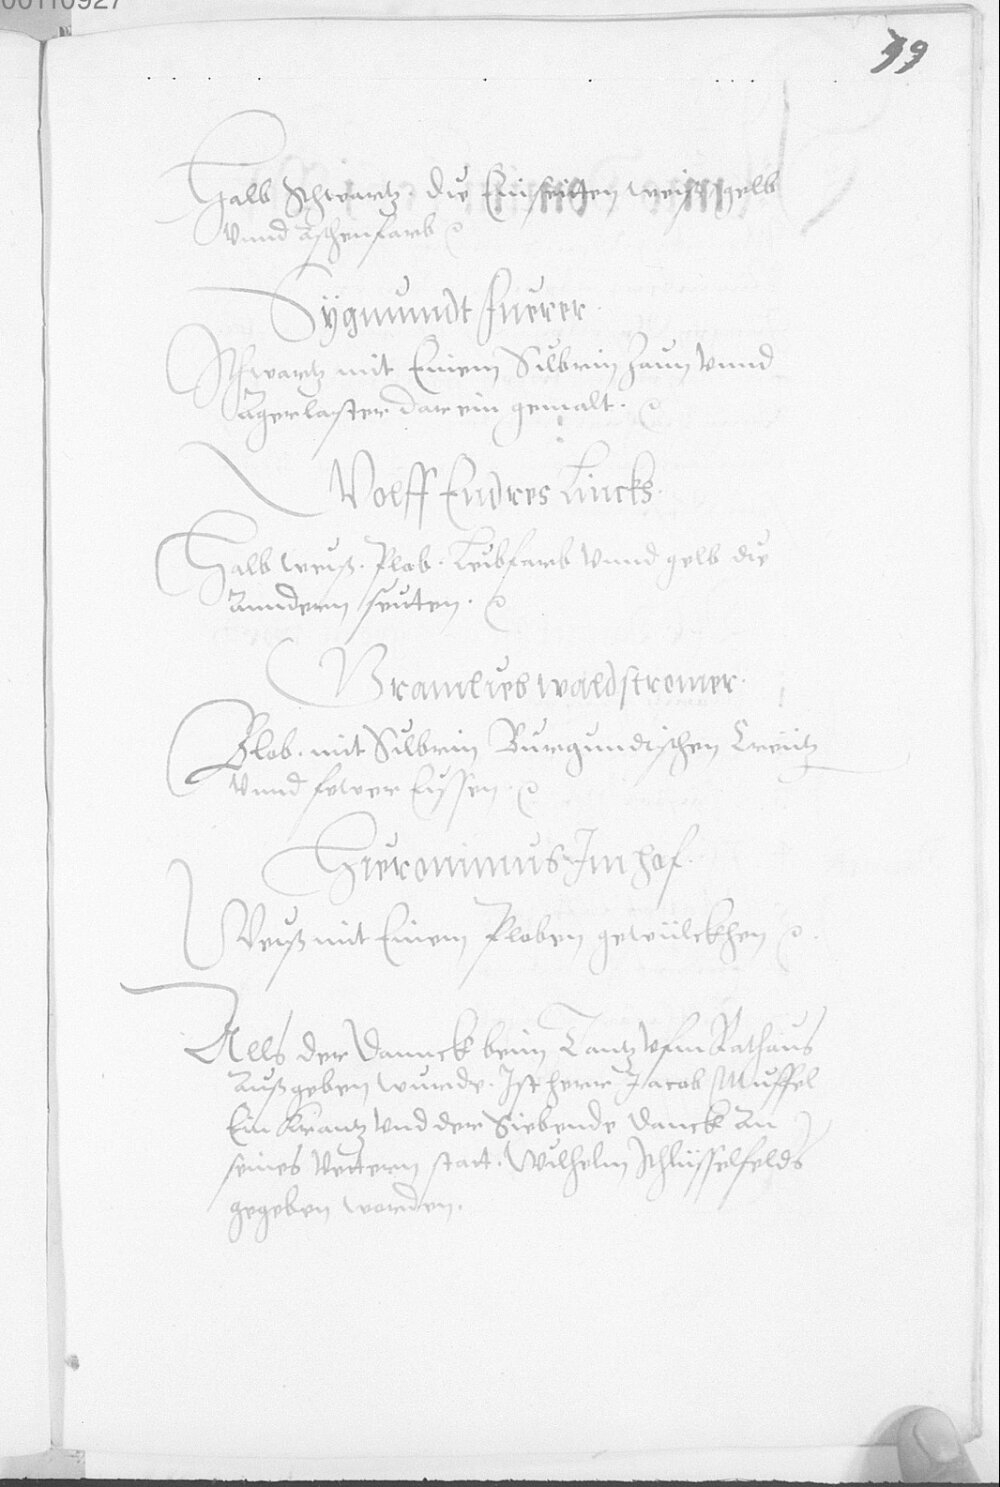 00110927
99
Halb Schwartz. die Ein seitten weiß gelb
vnnd Aschenfarb
Sÿgmundt Fuerer.
Schwartz mit Einem Silbrin Zaun vnnd
Agerlaster darein gemalt.
Wolff Endres Lincks.
Halb weiß. Plob. Leibfarb vnnd gelb die
Anndern seiten.
Gramlieb waldstromer.
Blob. mit Silbrin Burgundischen Creütz
vnnd fewer Eissen.
Hieronimus Im hof.
Weiß mit Einem Ploben gewülckhen
Alls der Dannck beim Tantz vfm Rathaus
Auß geben wurde. Ist herr Jacob Muffel
Ein Krantz vnd der Siebende Danck An
seines Vettern statt. Wilhelm Schlüsselfelds
gegeben worden.